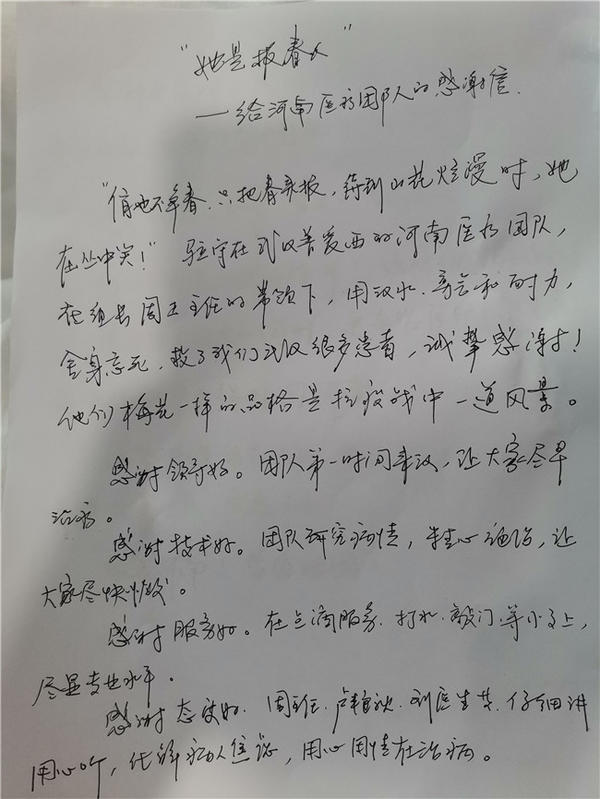 “她是报春人”
——给河南医疗团队的感谢信
“俏也不争春,只把春来报,待到山花烂漫时,她
在丛中笑!” 驻守在武汉普爱西的河南医疗团队,
在组长周正主任的带领下,用汗水、勇气和耐力,
舍身忘死,救了我们武汉很多患者,诚挚感谢!
他们梅花一样的品格是抗疫战中一道风景。
感谢领导好。团队第一时间来汉,让大家尽早
治疗。
感谢技术好。团队研究病情,精心施治,让
大家尽快恢复。
感谢服务好。在点滴服务、打水、敲门等小事上,
尽显专业水平。
感谢态度好。周主任、卢 刘医生 仔细讲
用心听,化解病人焦虑,用心用情在治病。